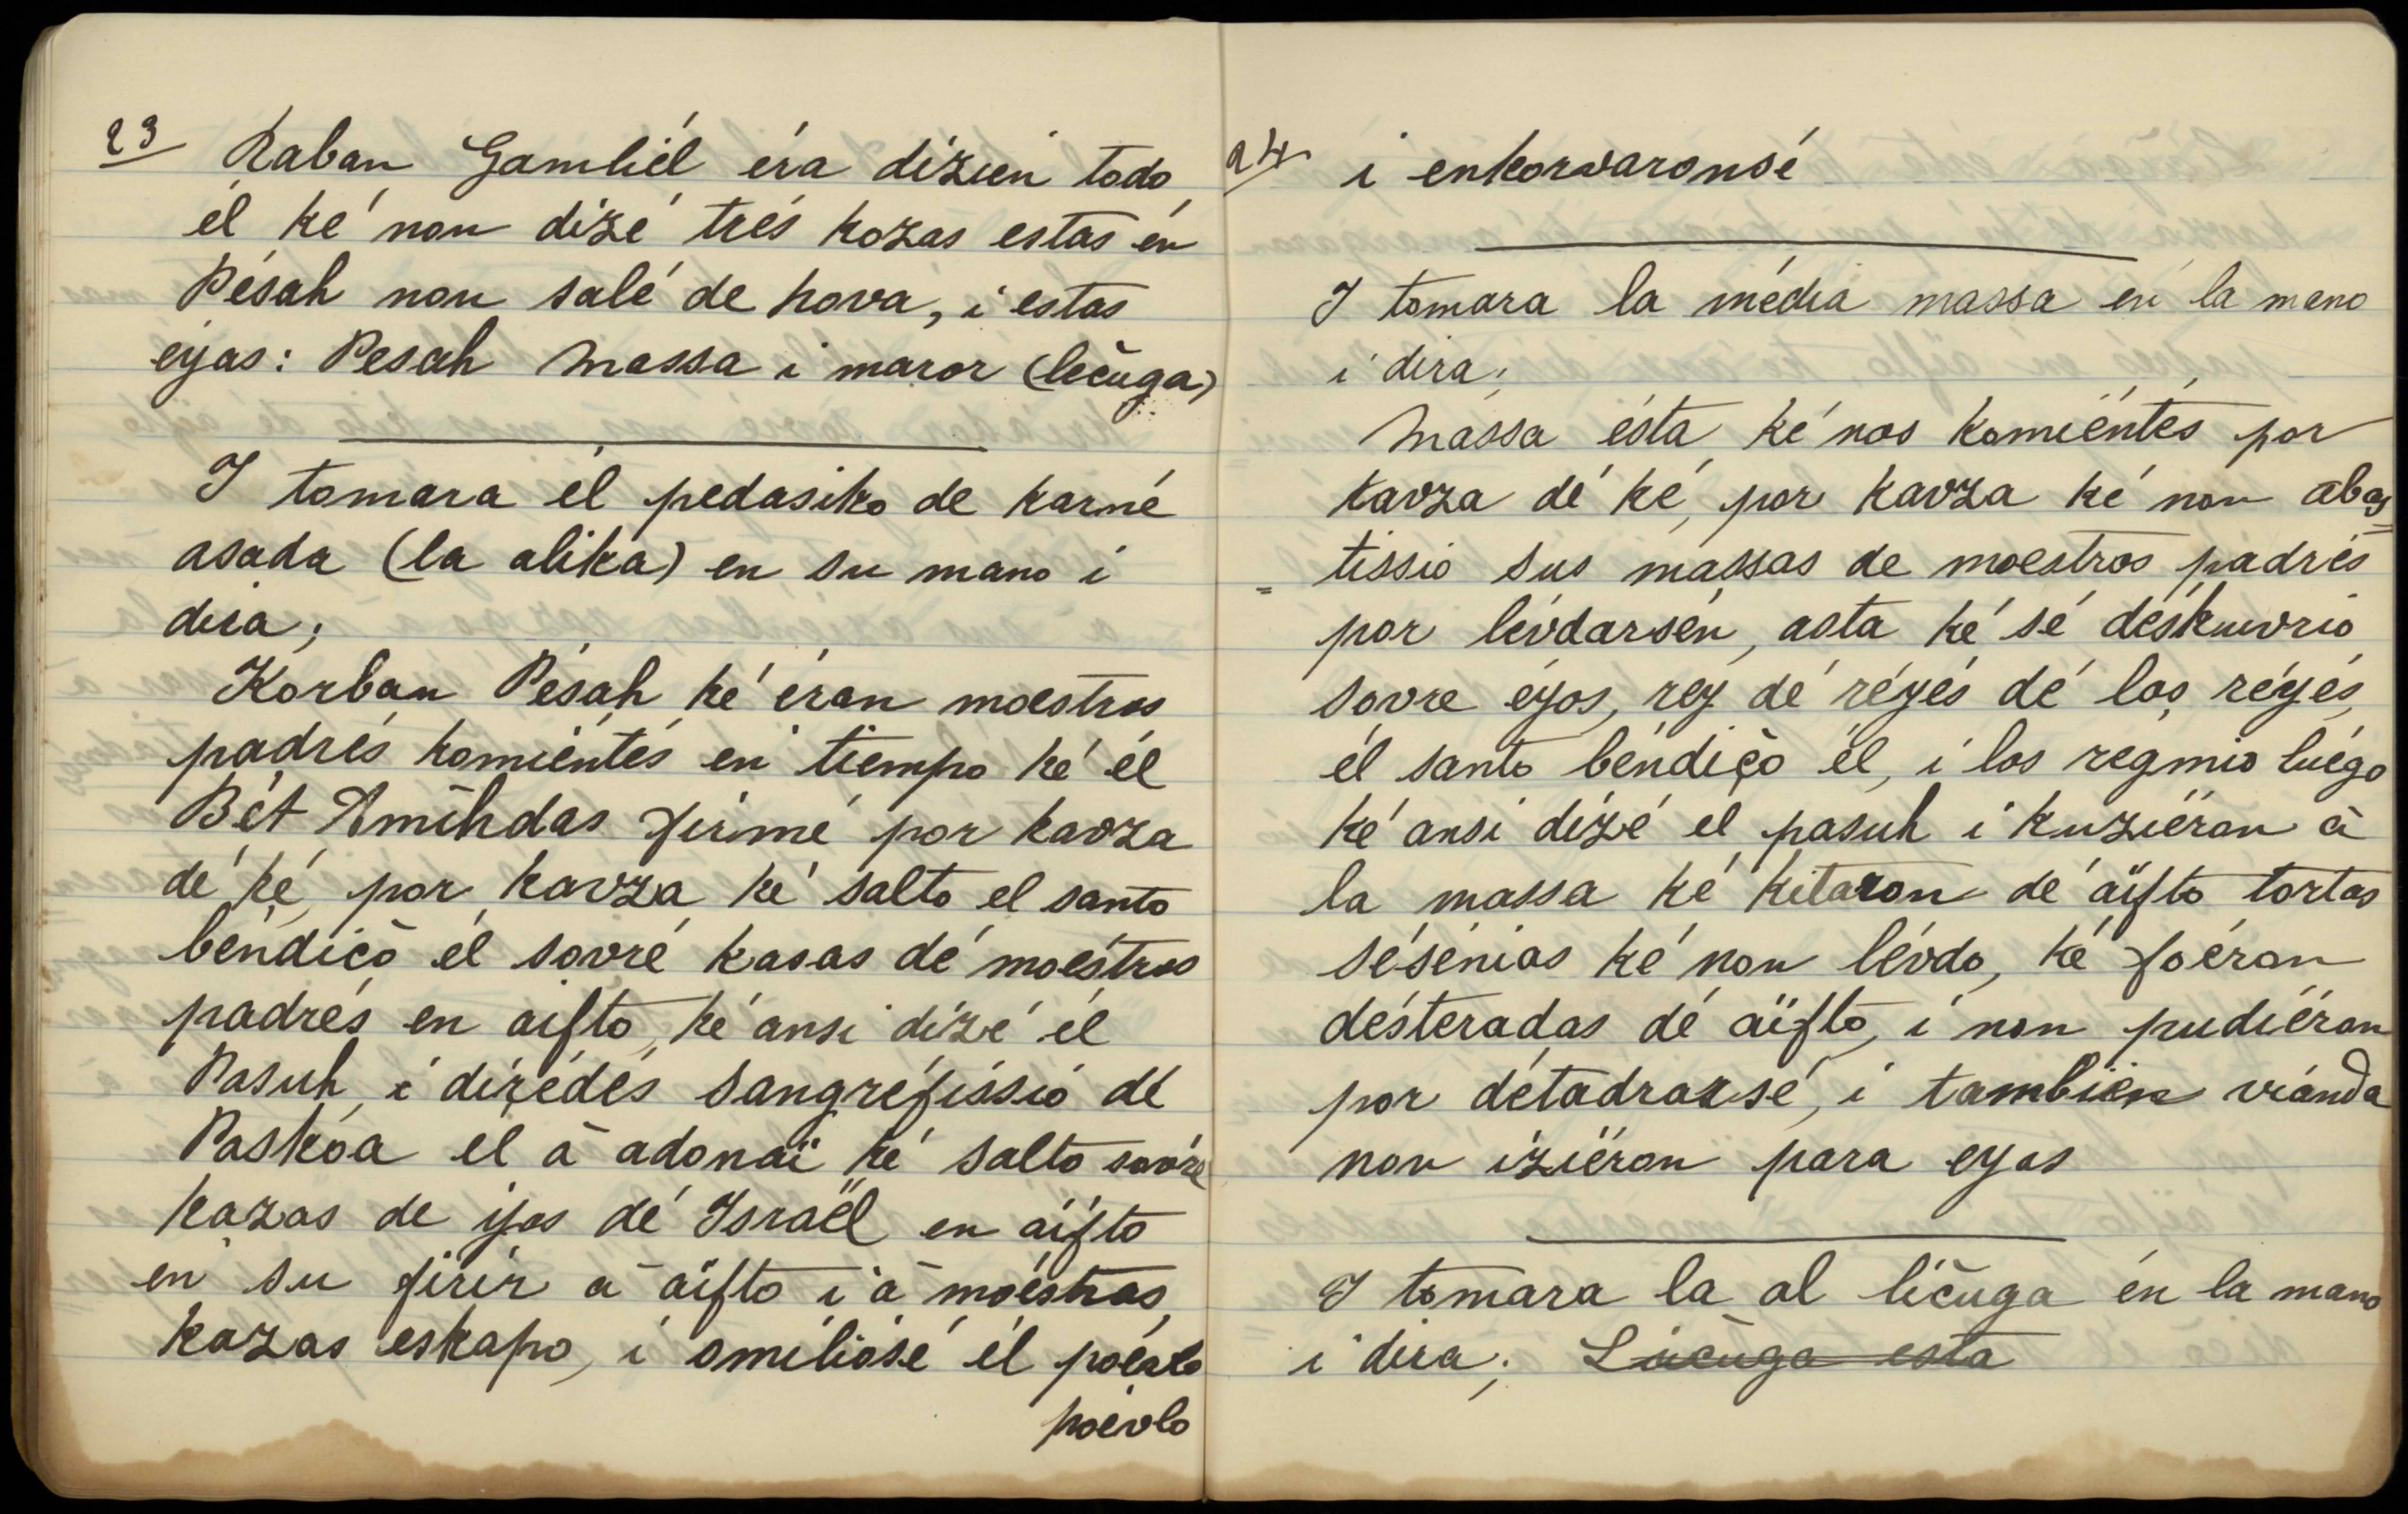 23
Raban Gamliél éra dizien todo
él ké non dizé trés kozas estas én
Pésah non salé de hova, i estas
éyas: Pesah Massa i maror (léčuga)
I tomara él pedasiko de karné
asada (la alika) en su mano i
dira;
Korban Pésah ké éran moestros
padrés komiéntés en tïempo ké él
Bét Amihdas firmé por kavza
dé ké, por kavza ké salto el santo
béndičo él sovré kasas dé moéstros
padrés en aifto, ké ansi dizé él
Pasuh, i dirédés sangréfissió dé
Paskoa él ā adonaï ké salto sovré
kazas de ijos dé Israël en aïfto
en su firir ā aïfto i ā moéstras
kazas eskapo, i omiliosé él poévlo
poévlo
24
i enkorvaronsé
I tomara la média massa en la mano
i dira;
Massa ésta ké nos komiéntés por
kavza dé ké, por kavza ké non abas=
=tissio sus massas de moestros padrés
por lévdarsén, asta ké sé déskuvrio
sovre éyos, rey dé réyés dé los réyés,
él santo béndičo él, i los regmio luégo
ké ansi dizé el pasuh i kuziéron ā
la massa ké kitaron dé aïfto tortas
sésénias ké non lévdo, ké foéron
désteradas dé aïfto, i non pudiéron
por détadrarsé, i tambien vianda
non iziéron para eyos
I tomara la al léčuga én la mano
i dira; Liečuga esta